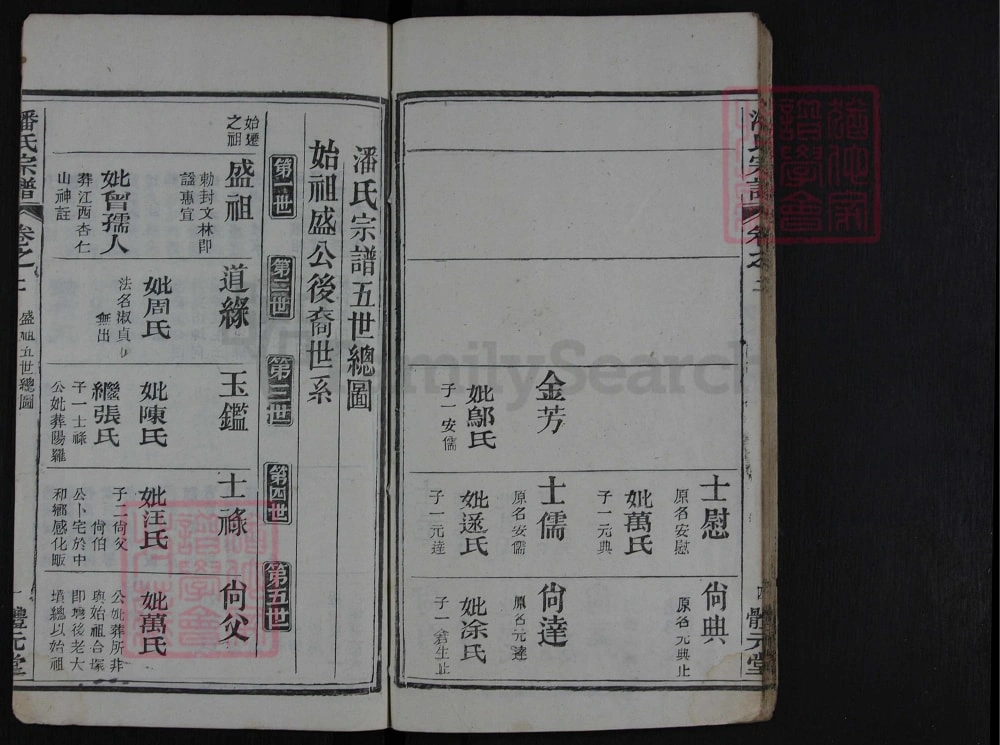 士慰
原名安慰
妣萬氏
子一元典
尙典
原名元典止
金芳
妣鄔氏
子一安儒
士儒
原名安儒
妣遜氏
子一元達
尙達
原名元達
妣凃氏
子一蒼生止
四
體元堂
潘氏宗譜五世總圖
始祖盛公後裔世系
第一世
第二世
第三世
第四世
第五世
始遷
之祖
盛祖
勅封文林郎
謚惠宣
妣曾孺人
葬江西杏仁
山神註
道緣
妣周氏
法名淑貞
無出
玉鑑
妣陳氏
繼張氏
子一士祿
公妣葬陽羅
士祿
妣汪氏
子二尙父
尙伯
公卜宅於中
和鄉感化畈
尙父
妣萬氏
公妣葬所非
與始祖合塚
即塘後老大
墳總以始祖
潘氏宗譜
卷之一
盛祖五世總圖
一
體元堂
FamilySearch